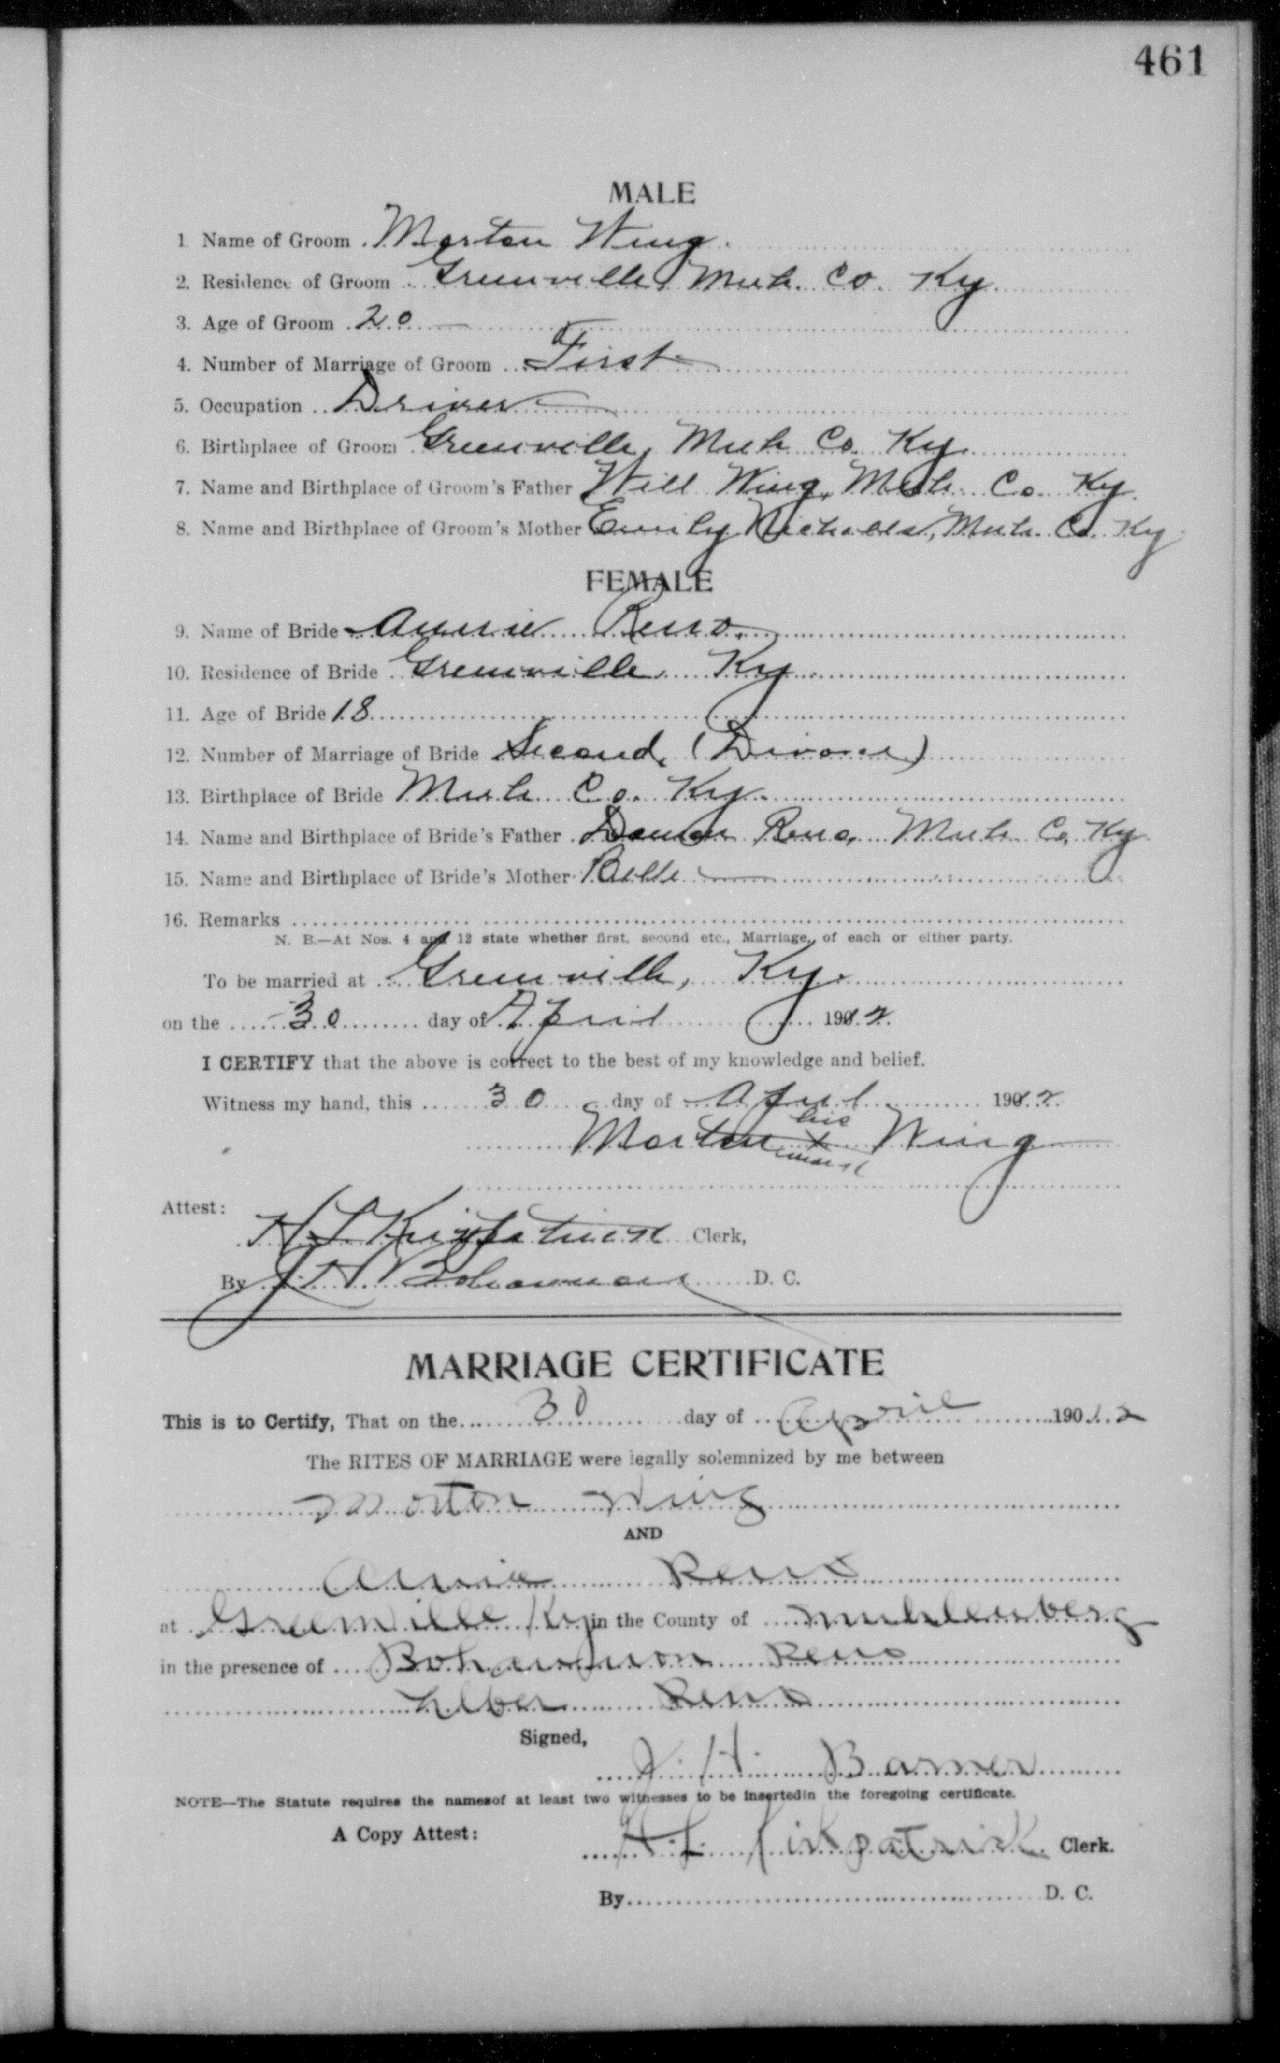 461
MALE
1. Name of Groom Morton Wing.
2. Residence of Groom Greenville, Muh. Co. Ky.
3. Age of Groom 20
4. Number of Marriage of Groom First
5. Occupation Driver
6. Birthplace of Groom Greenville, Muh Co. Ky.
7. Name and Birthplace of Groom's Father Will Wing, Muh. Co. Ky.
8. Name and Birthplace of Groom's Mother Emily Nicholls, Muh. Co. Ky.
FEMALE
9. Name of Bride Annie Reno.
10. Residence of Bride Greenville Ky.
11. Age of Bride 18
12. Number of Marriage of Bride Second, (Divorce)
13. Birthplace of Bride Muh Co. Ky.
14. Name and Birthplace of Bride's Father Reno, Muh. Co. Ky.
15. Name and Birthplace of Bride's Mother Belle
16. Remarks
N. B.—At Nos. 4 and 12 state whether first, second etc., Marriage, of each or either party.
To be married at Greenville, Ky.
on the 30 day of April 1912.
I CERTIFY that the above is correct to the best of my knowledge and belief.
Witness my hand, this 30 day of April 1912.
his
Morton x Wing
mark
Attest:
H L Kirkpatrick Clerk,
By J H Bohannon D. C.
MARRIAGE CERTIFICATE
This is to Certify, That on the 30 day of April 190 12
The RITES OF MARRIAGE were legally solemnized by me between
Morton Wing
AND
Annie Reno
at Greenville Ky in the County of Muhlenberg
in the presence of Bohannon Reno
Reno
Signed,
J. H. Barner
NOTE—The Statute requires the namesof at least two witnesses to be insertedin the foregoing certificate.
A Copy Attest:
H. L. Kirkpatrick Clerk.
By D. C.